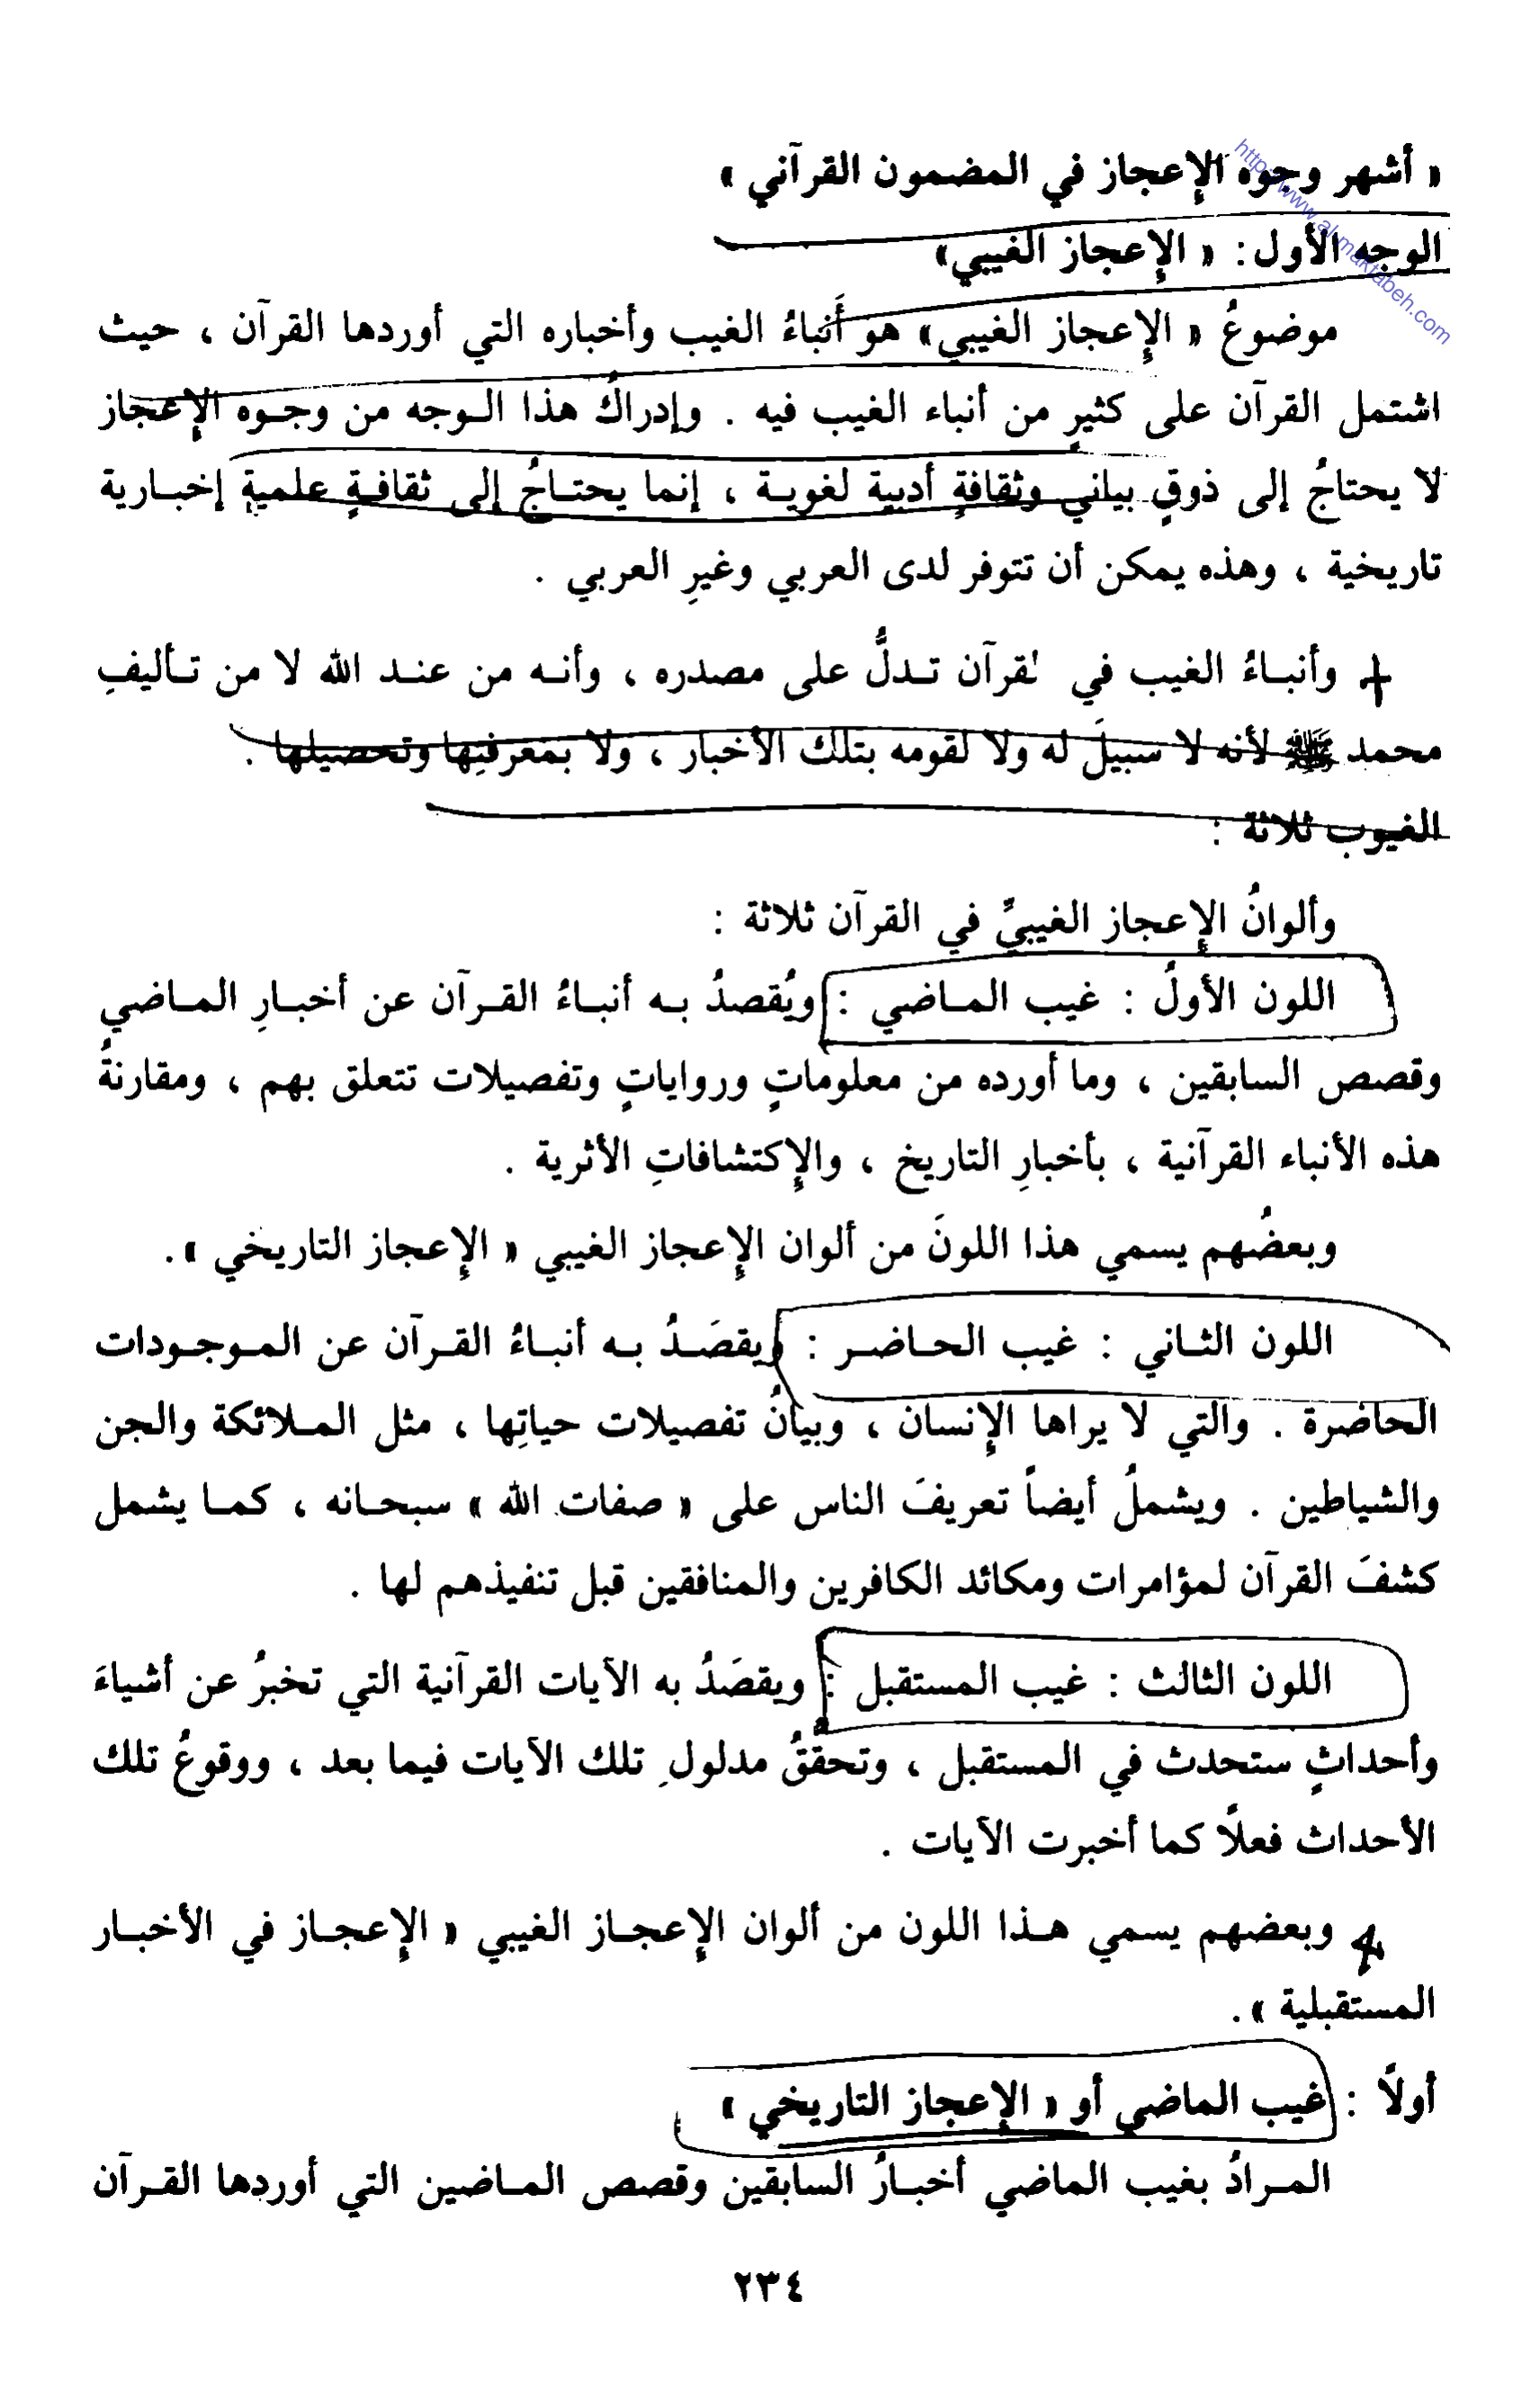 « أشهر وجوه الإعجاز في المضمون القرآني »
الوجه الأول : « الإعجاز الغيبي»
موضوعُ « الإعجاز الغيبي» هو أَنباءُ الغيب وأخباره التي أوردها القرآن ، حيث
اشتمل القرآن على كثيرٍ من أنباء الغيب فيه . وإدراكُ هذا الـوجه من وجـوه الإعجاز
لا يحتاجُ إلى ذوقٍ بياني وثقافةٍ أدبية لغويـة ، إنما يحتـاجُ إلى ثقافـةٍ علميةٍ إخبـارية
تاريخية ، وهذه يمكن أن تتوفر لدى العربي وغيرِ العربي .
وأنبـاءُ الغيب في القرآن تـدلُّ على مصدره ، وأنـه من عنـد الله لا من تـأليفِ
محمد ﷺ لأنه لا سبيلَ له ولا لقومه بتلك الأخبار ، ولا بمعرفتِها وتحصيلها .
الغيوب ثلاثة :
وألوانُ الإعجاز الغيبيِّ في القرآن ثلاثة :
اللون الأولُ : غيب المـاضي : ويُقصدُ بـه أنبـاءُ القـرآن عن أخبـارِ المـاضي
وقصص السابقين ، وما أورده من معلوماتٍ ورواياتٍ وتفصيلات تتعلق بهم ، ومقارنةُ
هذه الأنباء القرآنية ، بأخبارِ التاريخ ، والإكتشافاتِ الأثرية .
وبعضُهم يسمي هذا اللونَ من ألوان الإعجاز الغيبي « الإعجاز التاريخي ».
اللون الثـاني : غيب الحـاضـر : ويقصَـدُ بـه أنبـاءُ القـرآن عن المـوجـودات
الحاضرة . والتي لا يراها الإنسان ، وبيانُ تفصيلات حياتِها ، مثل المـلائكة والجن
والشياطين . ويشملُ أيضاً تعريفَ الناس على « صفات الله » سبحـانه ، كمـا يشمل
كشفَ القرآن لمؤامرات ومكائد الكافرين والمنافقين قبل تنفيذهم لها .
اللون الثالث : غيب المستقبل : ويقصَدُ به الآيات القرآنية التي تخبرُ عن أشياءَ
وأحداثٍ ستحدث في المستقبل ، وتحقُّقُ مدلولِ تلك الآيات فيما بعد ، ووقوعُ تلك
الأحداث فعلًا كما أخبرت الآيات .
وبعضهم يسمي هـذا اللون من ألوان الإعجـاز الغيبي « الإعجـاز في الأخبـار
المستقبلية ».
أولًا : غيب الماضي أو « الإعجاز التاريخي »
المـرادُ بغيب الماضي أخبـارُ السابقين وقصص المـاضين التي أوردها القـرآن
٢٣٤